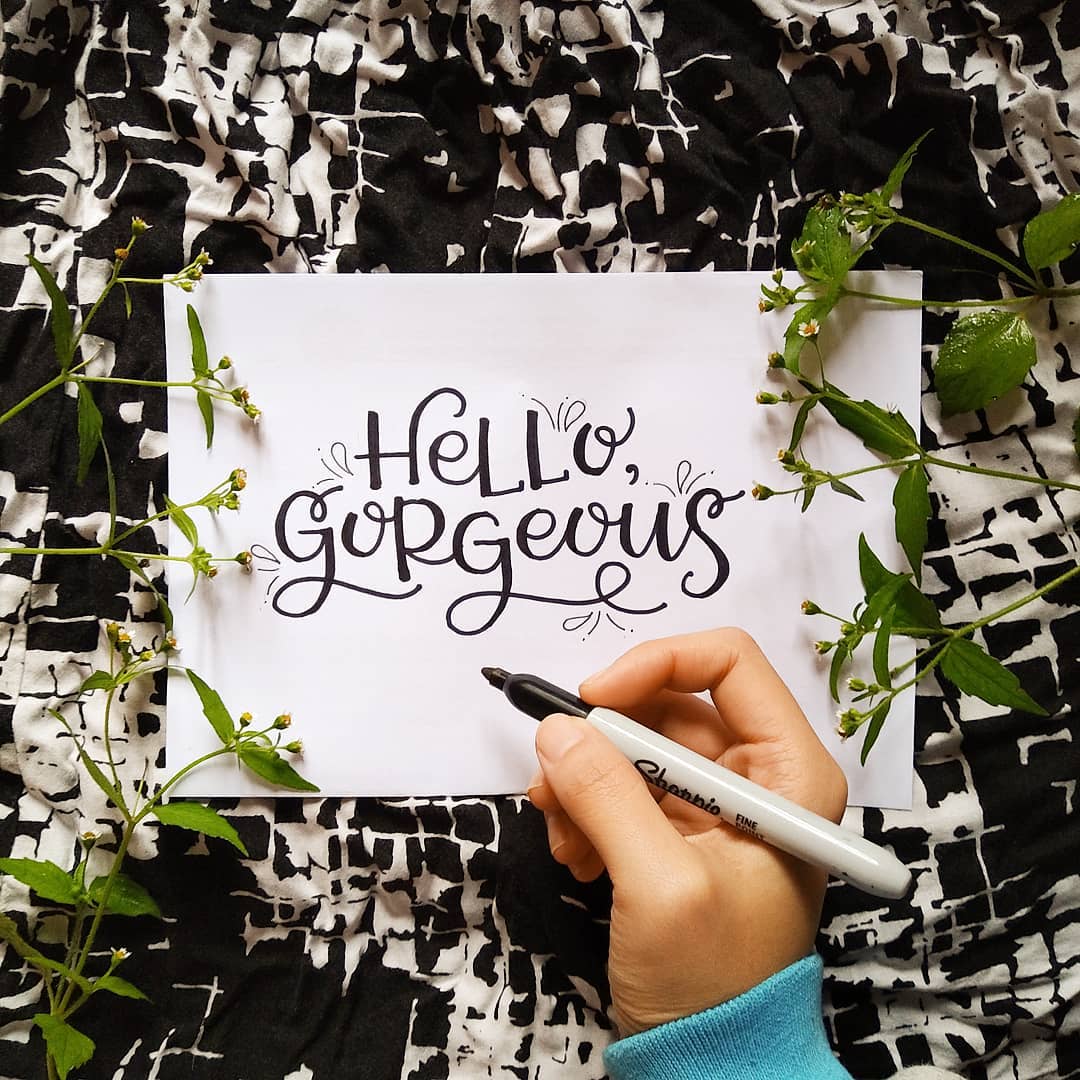 Hello,
Gorgeous
Sharpie
FINE
POINT